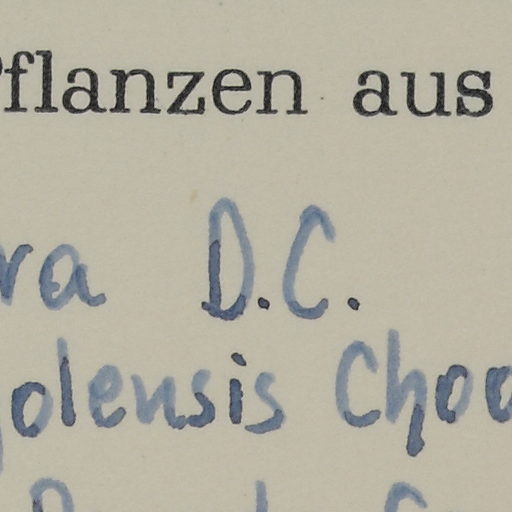 Pflanzen aus
ra D.C.
golensis Choo